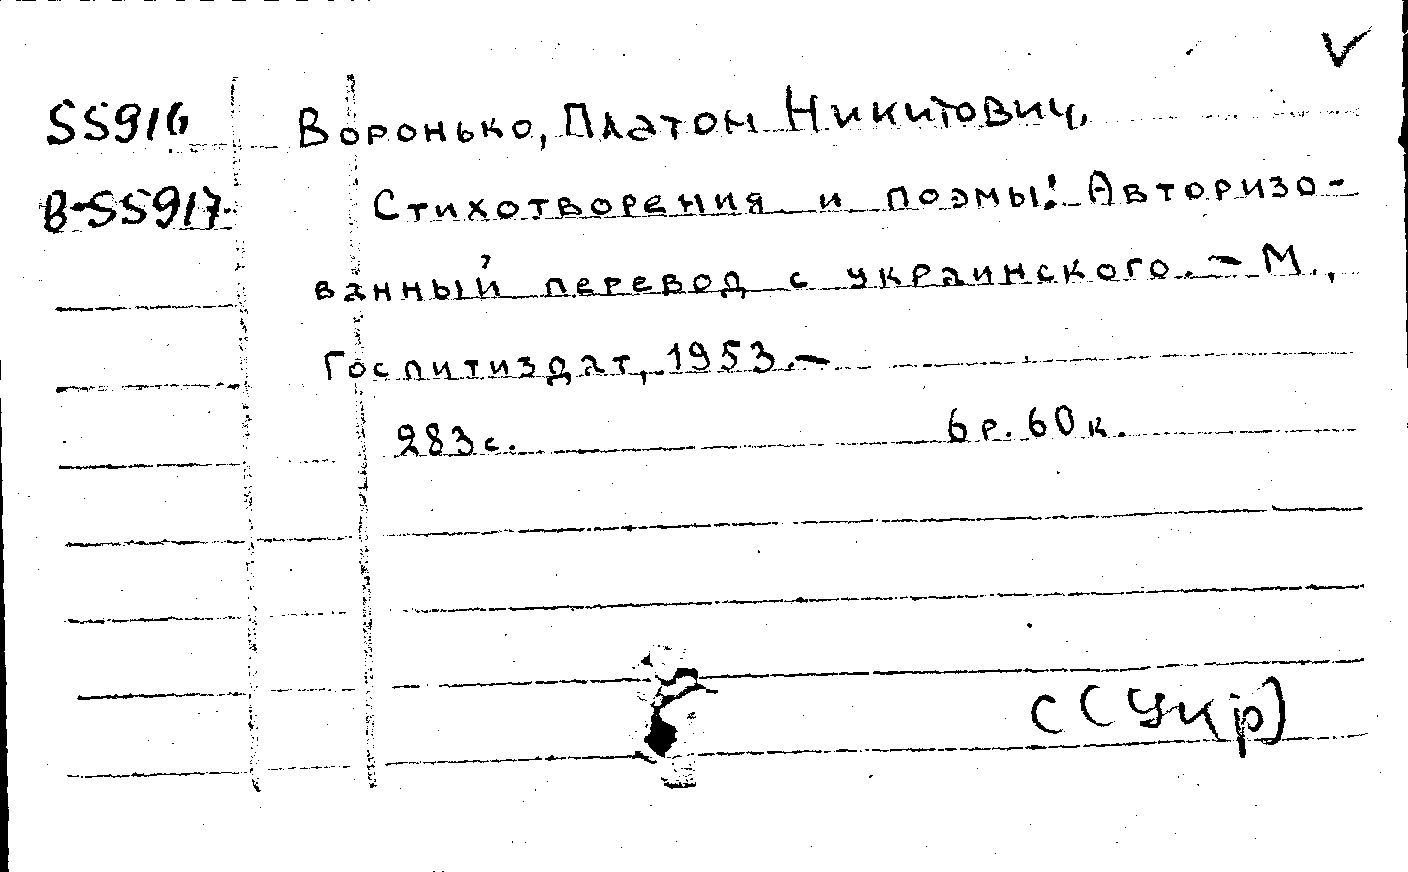 55916 Воронько, Платон Никитович.
В-55917. Стихотворения и поэмы: Авторизо-
ванный перевод с украинского. - М.,
Гослитиздат, 1953. -
283 с. 6 р. 60 к.
С (Укр)